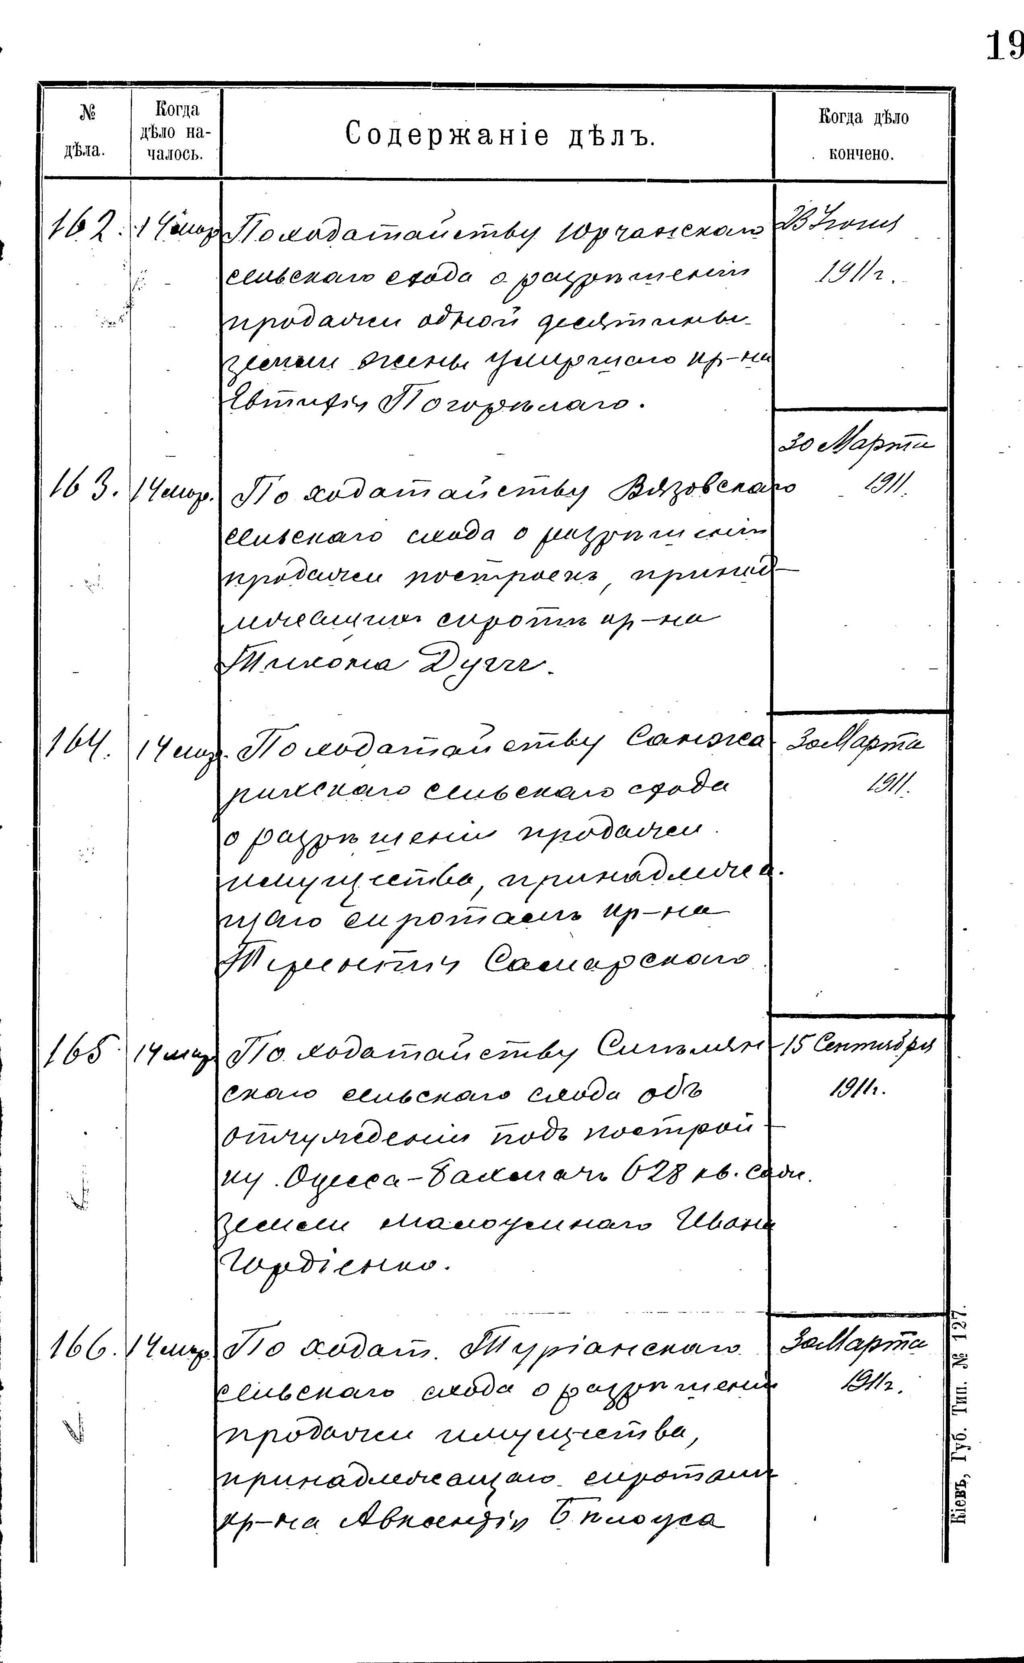 19
№ дѣла.
Когда дѣло на-чалось.
Содержаніе дѣлъ.
Когда дѣло кончено.
162. 14 мар По ходатайству Юрчанскаго 23 Іюня
сельскаго схода о разрѣшеніи 1911г.
продажи одной десятины
земли жены умершаго кр-на
Евтифія Погорѣлаго.
30 Марта
163. 14 мар. По ходатайству Вязовскаго 1911.
сельскаго схода о разрѣшеніи
продажи построекъ, принад-
лежащихъ сиротѣ кр-на
Тихона
164. 14 мар. По ходатайству Санжа- 30 Марта
рихскаго сельскаго схода 1911.
о разрѣшеніи продажи
имущества, принадлежа-
щаго сиротамъ кр-на
Терентія Самарскаго
165 14 мар По ходатайству 15 Сентября
скаго сельскаго схода объ 1911г.
отчужденіи подъ построй-
ку Одесса-Бахмачъ 628 кв. саж.
земли малоумнаго Ивана
Гордіенко.
166. 14 мар По ходат. Туріанскаго 30 Марта
сельскаго схода о разрѣшеніи 1911г.
продажи имущества,
принадлежащаго сиротамъ
кр-на Авксентія Бѣлоуса
Кіевъ, Губ. Тип. № 127.